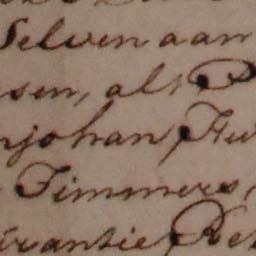 Selven aan
sen, als P
njohan Hu
Timmers,
rantie Re